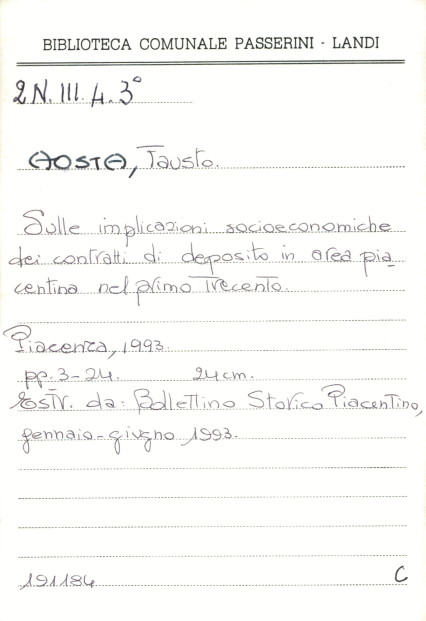 BIBLIOTECA COMUNALE PASSERINI - LANDI
2N. III. 4. 3°
AOSTA, Fausto.
Sulle implicazioni socioeconomiche
dei contratti di deposito in area pia
centina nel primo Trecento.
Piacenza, 1993.
pp. 3-24. 24 cm.
Estr. da: Bollettino Storico Piacentino,
gennaio-giugno 1993.
191184 C